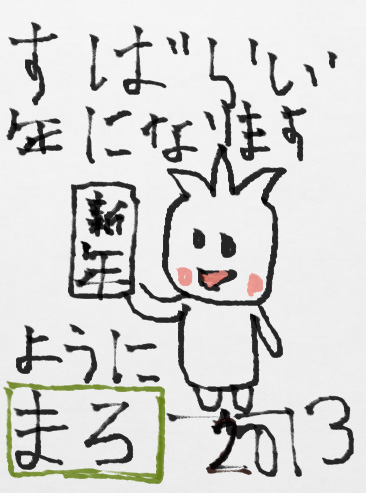 すばらしい
年になります
新年
ように
まろ 2013